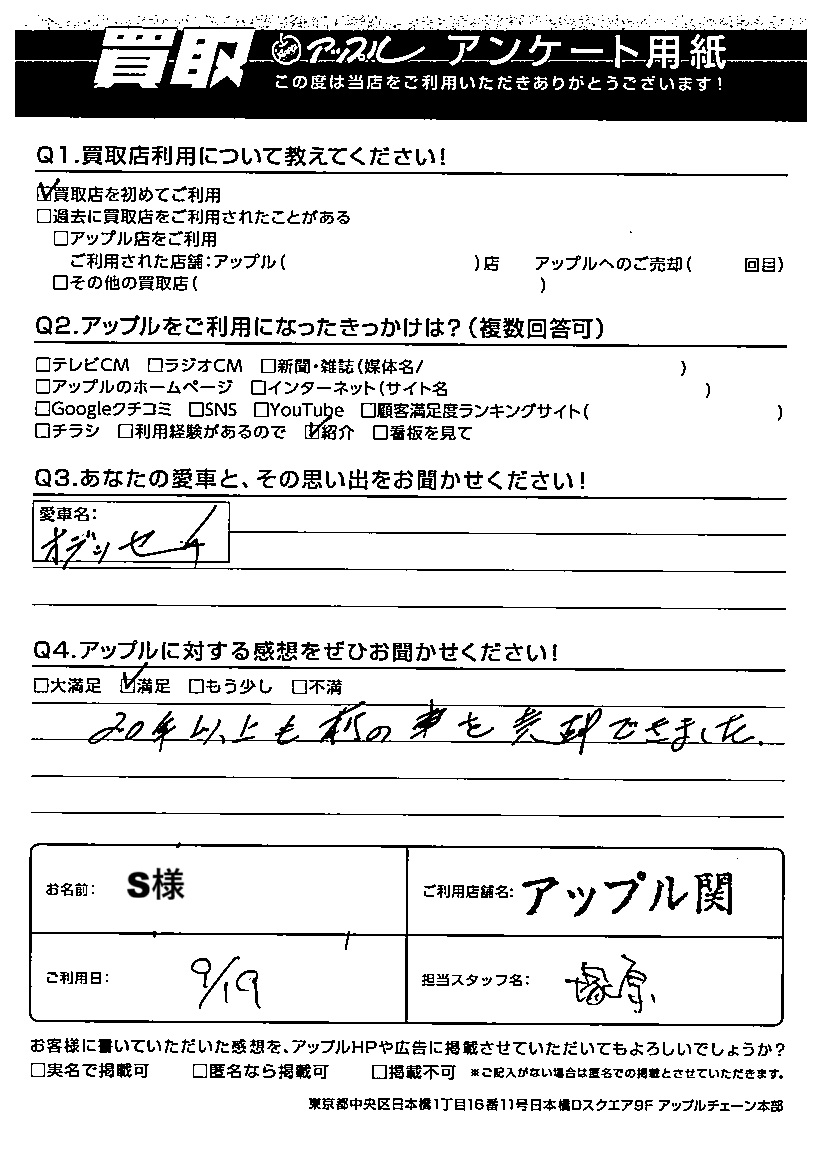 買取 アップル アンケート用紙
この度は当店をご利用いただきありがとうございます!
Q1.買取店利用について教えてください!
☑買取店を初めてご利用
□過去に買取店をご利用されたことがある
□アップル店をご利用
ご利用された店舗:アップル( )店 アップルへのご売却( 回目)
□その他の買取店( )
Q2.アップルをご利用になったきっかけは?(複数回答可)
□テレビCM □ラジオCM □新聞・雑誌(媒体名/ )
□アップルのホームページ □インターネット(サイト名 )
□Googleクチコミ □SNS □YouTube □顧客満足度ランキングサイト( )
□チラシ □利用経験があるので ☑紹介 □看板を見て
Q3.あなたの愛車と、その思い出をお聞かせください!
愛車名:
オデッセイ
Q4.アップルに対する感想をぜひお聞かせください!
□大満足 ☑満足 □もう少し □不満
20年以上も前の車を売却できました.
お名前: S様 ご利用店舗名: アップル関
ご利用日: 9/19 担当スタッフ名: 塚原
お客様に書いていただいた感想を、アップルHPや広告に掲載させていただいてもよろしいでしょうか?
□実名で掲載可 □匿名なら掲載可 □掲載不可 ※ご記入がない場合は匿名での掲載とさせていただきます。
東京都中央区日本橋1丁目16番11号日本橋Dスクエア9F アップルチェーン本部